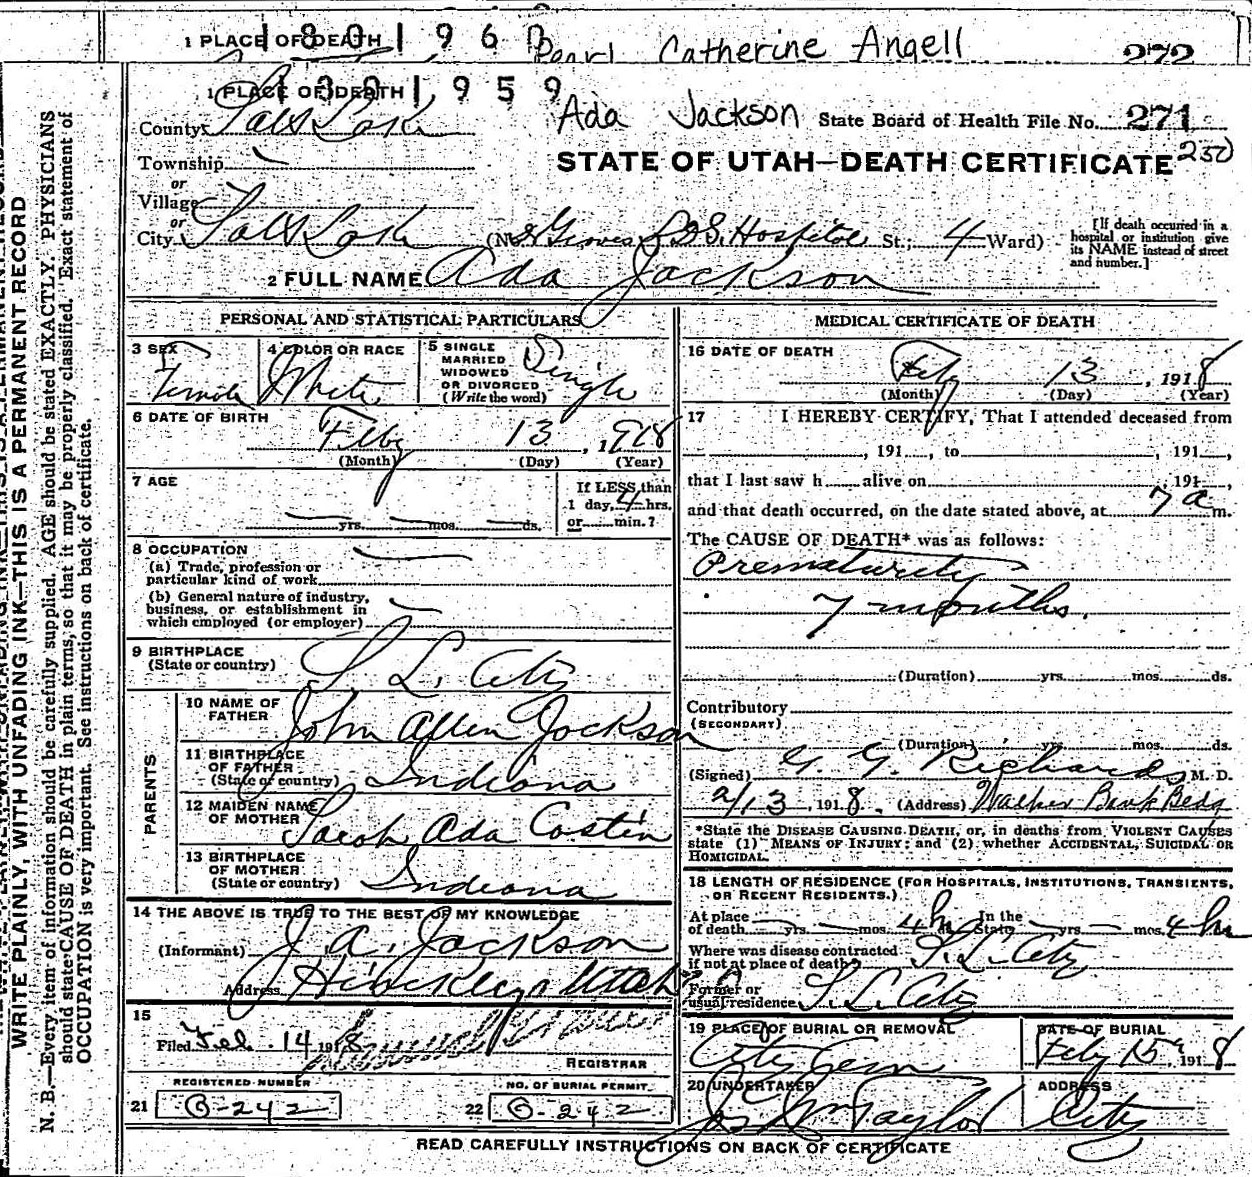 1 PLACE OF DEATH 1801960 Pearl Catherine Angell 272
1 PLACE OF DEATH 1301959
Ada Jackson State Board of Health File No. 271
County Salt Lake
STATE OF UTAH—DEATH CERTIFICATE 250
Township
or
Village
or
City Salt Lake (No. Groves L.D.S. Hospital St.; 4 Ward)
[If death occurred in a
hospital or institution give
its NAME instead of street
and number.]
2 FULL NAME Ada Jackson
PERSONAL AND STATISTICAL PARTICULARS
3 SEX Female
4 COLOR OR RACE White
5 SINGLE
MARRIED
WIDOWED
OR DIVORCED
(Write the word) Single
6 DATE OF BIRTH
Feby 13, 1918
(Month) (Day) (Year)
7 AGE
yrs. mos. ds.
If LESS than
1 day, 4 hrs.
or min.?
8 OCCUPATION
(a) Trade, profession or
particular kind of work
(b) General nature of industry,
business, or establishment in
which employed (or employer)
9 BIRTHPLACE
(State or country) S. L. City
PARENTS
10 NAME OF
FATHER John Allen Jackson
11 BIRTHPLACE
OF FATHER
(State or country) Indiana
12 MAIDEN NAME
OF MOTHER Sarah Ada Costin
13 BIRTHPLACE
OF MOTHER
(State or country) Indiana
14 THE ABOVE IS TRUE TO THE BEST OF MY KNOWLEDGE
(Informant) J. A. Jackson
Address Hinckley Utah
15
Filed Feb. 14 1918
REGISTRAR
REGISTERED NUMBER
21 B-242
NO. OF BURIAL PERMIT
22 B-242
MEDICAL CERTIFICATE OF DEATH
16 DATE OF DEATH
Feby 13, 1918
(Month) (Day) (Year)
17 I HEREBY CERTIFY, That I attended deceased from
, 191 , to , 191 ,
that I last saw h alive on , 191 ,
and that death occurred, on the date stated above, at 7 a m.
The CAUSE OF DEATH* was as follows:
Prematurity
7 months.
(Duration) yrs. mos. ds.
Contributory
(SECONDARY)
(Duration) yrs. mos. ds.
(Signed) G. G. Richards M. D.
2/13, 1918. (Address) Walker Bank Bldg
*State the DISEASE CAUSING DEATH, or, in deaths from VIOLENT CAUSES
state (1) MEANS OF INJURY; and (2) whether ACCIDENTAL, SUICIDAL OR
HOMICIDAL.
18 LENGTH OF RESIDENCE (FOR HOSPITALS, INSTITUTIONS, TRANSIENTS,
OR RECENT RESIDENTS.)
At place
of death yrs. mos. 4 h In the
State yrs. mos. 4 hr
Where was disease contracted
if not at place of death? S. L. City
Former or
usual residence S. L. City
19 PLACE OF BURIAL OR REMOVAL
City Cem
DATE OF BURIAL
Feby 15, 1918
20 UNDERTAKER
Jos Wm Taylor
ADDRESS
City
READ CAREFULLY INSTRUCTIONS ON BACK OF CERTIFICATE
WRITE PLAINLY, WITH UNFADING INK—THIS IS A PERMANENT RECORD
N. B.—Every item of information should be carefully supplied. AGE should be stated EXACTLY. PHYSICIANS
should state CAUSE OF DEATH in plain terms, so that it may be properly classified. Exact statement of
OCCUPATION is very important. See instructions on back of certificate.